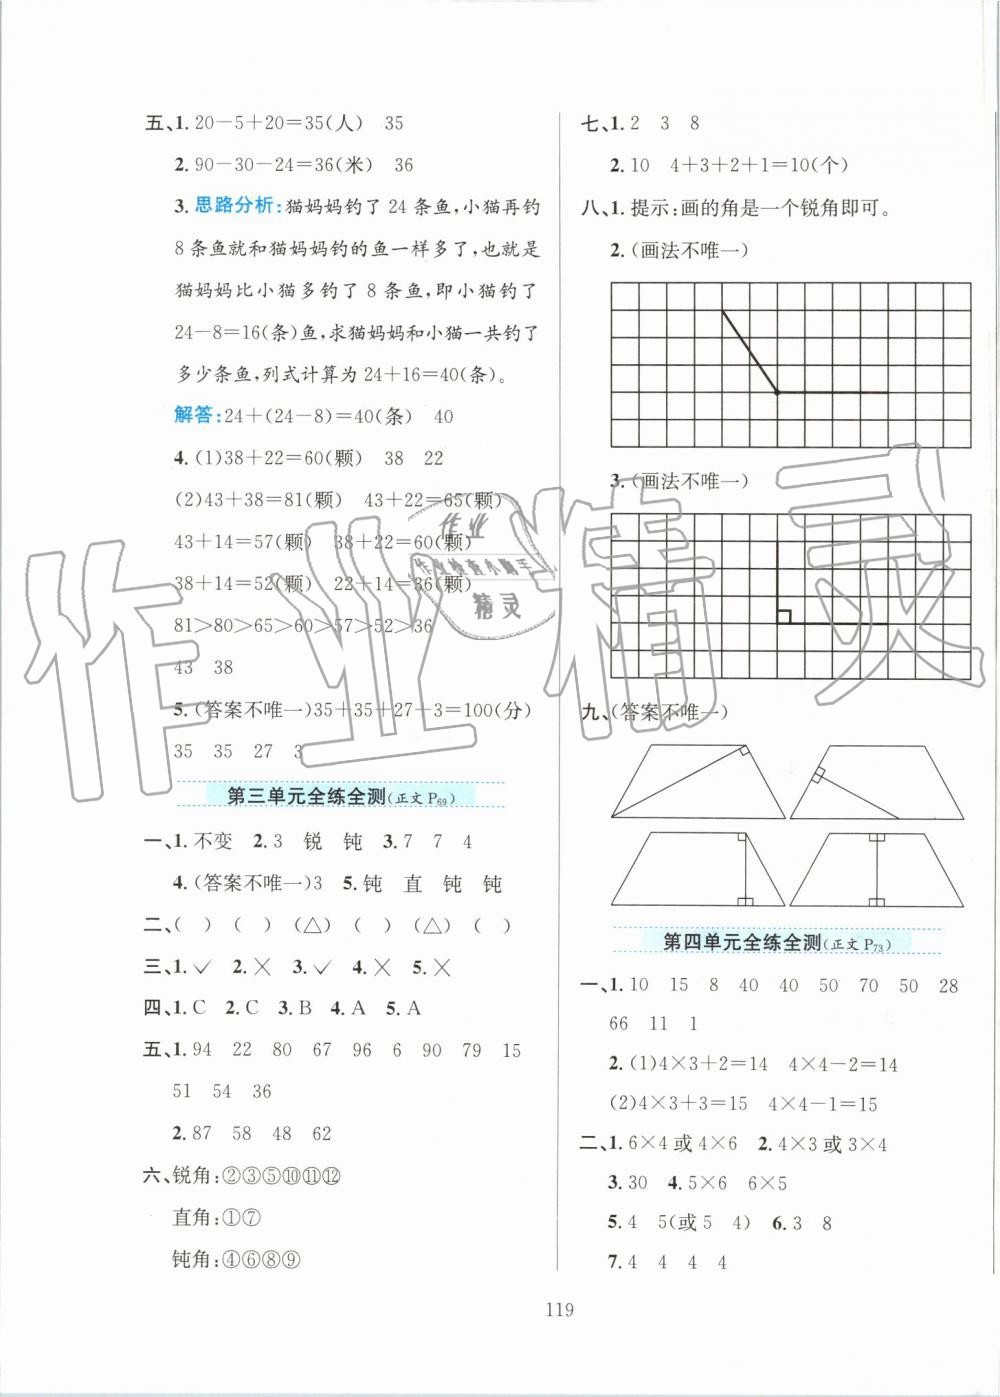 五、1. 20-5+20=35(人) 35
2. 90-30-24=36(米) 36
3. 思路分析:猫妈妈钓了 24 条鱼,小猫再钓
8 条鱼就和猫妈妈钓的鱼一样多了,也就是
猫妈妈比小猫多钓了 8 条鱼,即小猫钓了
24-8=16(条)鱼,求猫妈妈和小猫一共钓了
多少条鱼,列式计算为 24+16=40(条)。
解答:24+(24-8)=40(条) 40
4. (1)38+22=60(颗) 38 22
(2)43+38=81(颗) 43+22=65(颗)
43+14=57(颗) 38+22=60(颗)
38+14=52(颗) 22+14=36(颗)
81>80>65>60>57>52>36
43 38
5. (答案不唯一)35+35+27+3=100(分)
35 35 27 3
第三单元全练全测(正文 P69)
一、1. 不变 2. 3 锐 钝 3. 7 7 4
4. (答案不唯一)3 5. 钝 直 钝 钝
二、( ) ( ) (△) ( ) (△) ( )
三、1. ✓ 2. ✕ 3. ✓ 4. ✕ 5. ✕
四、1. C 2. C 3. B 4. A 5. A
五、1. 94 22 80 67 96 6 90 79 15
51 54 36
2. 87 58 48 62
六、锐角:②③⑤⑩⑪⑫
直角:①⑦
钝角:④⑥⑧⑨
七、1. 2 3 8
2. 10 4+3+2+1=10(个)
八、1. 提示:画的角是一个锐角即可。
2. (画法不唯一)
3. (画法不唯一)
九、(答案不唯一)
第四单元全练全测(正文 P73)
一、1. 10 15 8 40 40 50 70 50 28
66 11 1
2. (1)4×3+2=14 4×4-2=14
(2)4×3+3=15 4×4-1=15
二、1. 6×4 或 4×6 2. 4×3 或 3×4
3. 30 4. 5×6 6×5
5. 4 5(或5 4) 6. 3 8
7. 4 4 4 4
119
作业精灵
作业
作业检查小助手
精灵